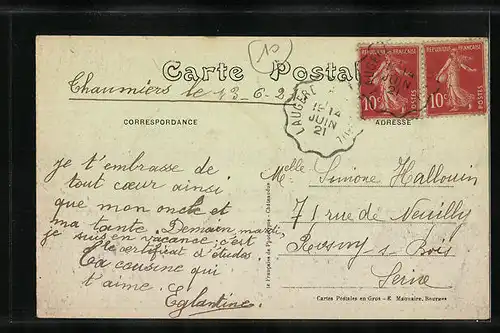 10
Carte Postale
Chaumiers le 13-6-21
RÉPUBLIQUE FRANÇAISE
10c POSTES
RÉPUBLIQUE FRANÇAISE
10c POSTES
LAUGÈRE
12-14
JUIN
21
JUIN
21
CORRESPONDANCE
ADRESSE
je t'embrasse de
tout cœur ainsi
que mon oncle et
ma tante. Demain mardi
je suis en vacance, c'est
le certificat d'études.
Ta cousine qui
t'aime. Eglantine.
Melle Simone Hallouin
71 rue de Neuilly
Rosny-s-Bois
Seine
Cartes Postales en Gros - E. Maquaire, Bourges